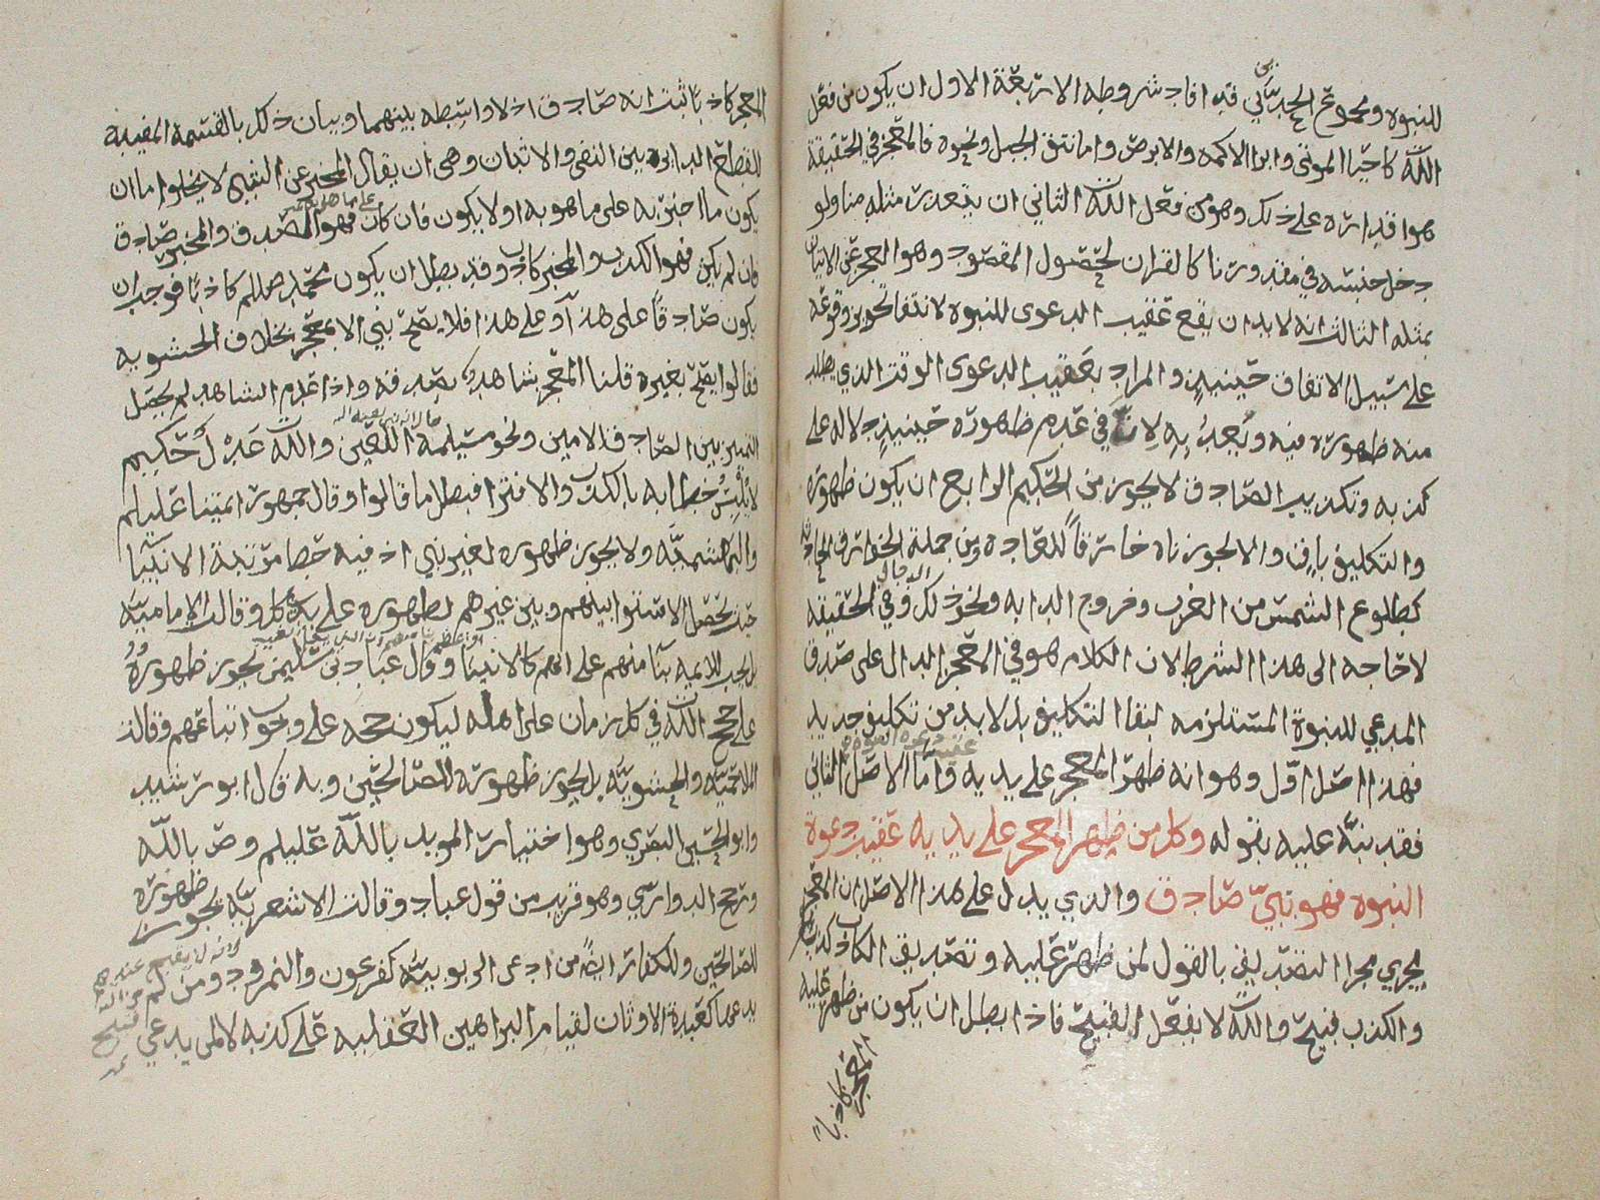 للنبوه ونحو فتح الحديث فقد افاد شروطه الاربعة الاول ان يكون من فعل
الله كاحيا الموتى وابرا الاكمه والابرص واما نتق الجبل ونحوه فالمعجز في الحقيقة
هو اقداره على ذلك وهو من فعل الله الثاني ان يتعذر مثله منا ولو
دخل جنسه في مقدورنا كالقران لحصول المقصود وهو العجز عن الاتيان
بمثله الثالث انه لابد ان يقع عقيب الدعوى للنبوه لانتفا تجويز وقوعه
على سبيل الاتفاق حينيذٍ والمراد بعقيب الدعوى الوقت الذي يطلب
منه ظهوره فيه ويعد به لان في عدم ظهوره حينيذٍ دلاله على
كذبه وتكذيب الصادق لا يجوز من الحكيم الرابع ان يكون ظهوره
والتكليف باقٍ والا لجوزناه خارقاً للعاده ومن جملة الخوارق الحادثه
كطلوع الشمس من الغرب وخروج الدابه ونحو ذلك وفي الحقيقه
الدجال
لا حاجه الى هذا الشرط لان الكلام هو في المعجز الدال على صدق
المدعي للنبوة المستلزمه لبقا التكليف بل لابد من تكليف جديد
فهذا اصل اول وهو انه ظهر المعجز على يديه واما الاصل الثاني
عقيب دعوه النبوه
فقد نبه عليه بقوله وكل من ظهر المعجز على يديه عقيب دعوة
النبوه فهو نبيّ صادق والذي يدل على هذا الاصل ان المعجز
يجري مجرا التصديق بالقول لمن ظهر عليه وتصديق الكاذب كذب
والكذب قبيح والله لا يفعل القبيح فاذا بطل ان يكون من ظهر عليه
المعجز كاذباً
المعجز كاذباً ثبت انه صادق اذ لا واسطه بينهما وبيان ذلك بالقسمه المفيده
للقطع الدايره بين النفي والاثبات وهي ان يقال المخبر عن الشي لا يخلوا اما ان
يكون ما اخبر به على ما هو به او لا يكون فان كان فهو الصدق والمخبر صادق
على ما هو به
فان لم يكن فهو الكذب والمخبر كاذب وقد بطل ان يكون محمد صللم كاذباً فوجب ان
يكون صادقاً على هذا وعلى هذا فلا يصح نبي الا بمعجز بخلاف الحشويه
فقالوا يصح بغيره قلنا المعجز شاهد بصدقه واذا عدم الشاهد لم يحصل
التميز بين الصادق الامين ونحو مسيلمة اللعين والله عدل حكيم
لا يلبس خطابه بالكذب والافترا فبطل ما قالوا وقال جمهور ايمتنا عليلم
والبهاشميّه ولا يجوز ظهوره لغير نبي اذ فيه حط مرتبة الانبيا
حيث يحصل الاستوا بينهم وبين غيرهم لظهوره على يد كل وقالت الاماميّه
بل يجب للايمه بنا منهم على انهم كالانبيا وقال عباد بن سليمن يجوز ظهوره
على حجج الله في كل زمان على اهله ليكون حجه على وجوب اتباعهم وقالت
الملاحميّه والحشويّه بل يجوز ظهوره للصالحين وبه قال ابو رشيد
وابو الحسين البصري وهو اختيار المويد بالله عليلم وص بالله
ورجح الدواري وهو قريب من قول عباد وقالت الاشعريّه يجوز ظهوره
للصالحين وللكفار ايضاً من ادعى الربوبيّه كفرعون والنمرود ومن لم
يدعها كعبدة الاوثان لقيام البراهين العقليه على كذبه لا لمن يدعي